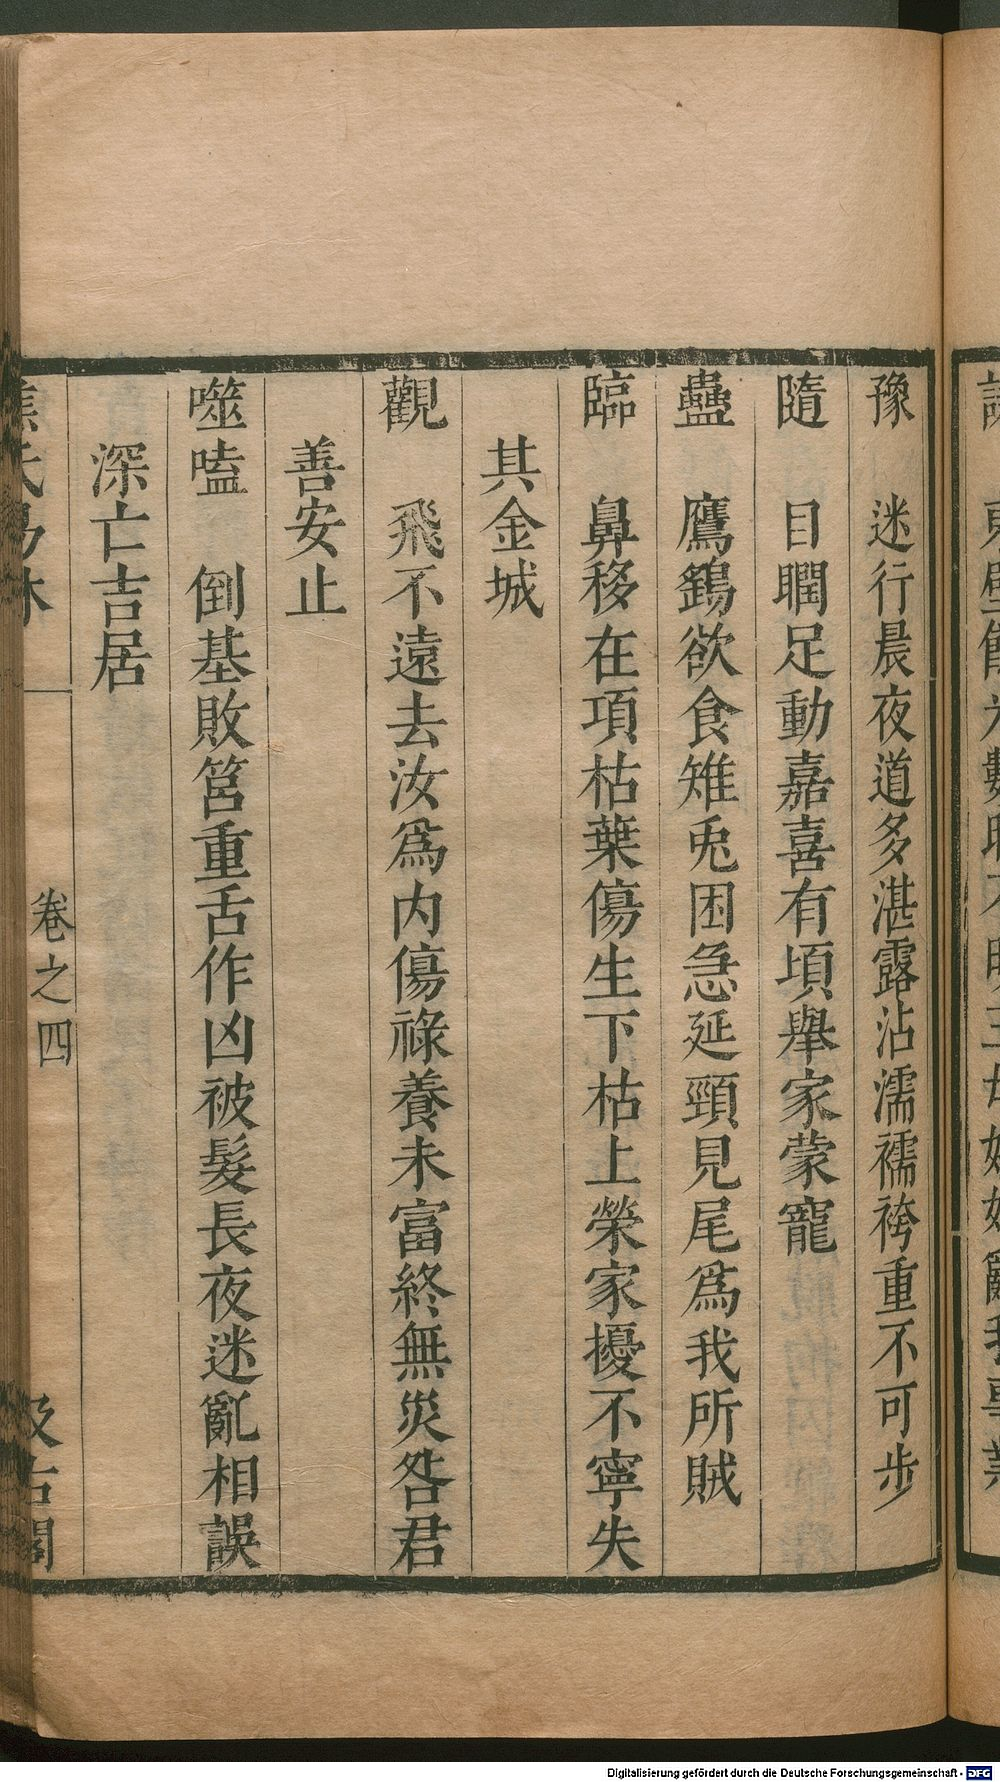 豫　迷行晨夜道多湛露沾濡襦袴重不可步
隨　目瞤足動嘉喜有頃舉家蒙寵
蠱　鷹鷂欲食雉兎困急延頸見尾爲我所賊
臨　鼻移在項枯葉傷生下枯上榮家擾不寧失
其金城
觀　飛不遠去汝爲内傷祿養未富終無災咎君
善安止
噬嗑　倒基敗筥重舌作凶被髮長夜迷亂相誤
深亡吉居
焦氏易林
卷之四
汲古閣
Digitalisierung gefördert durch die Deutsche Forschungsgemeinschaft - DFG